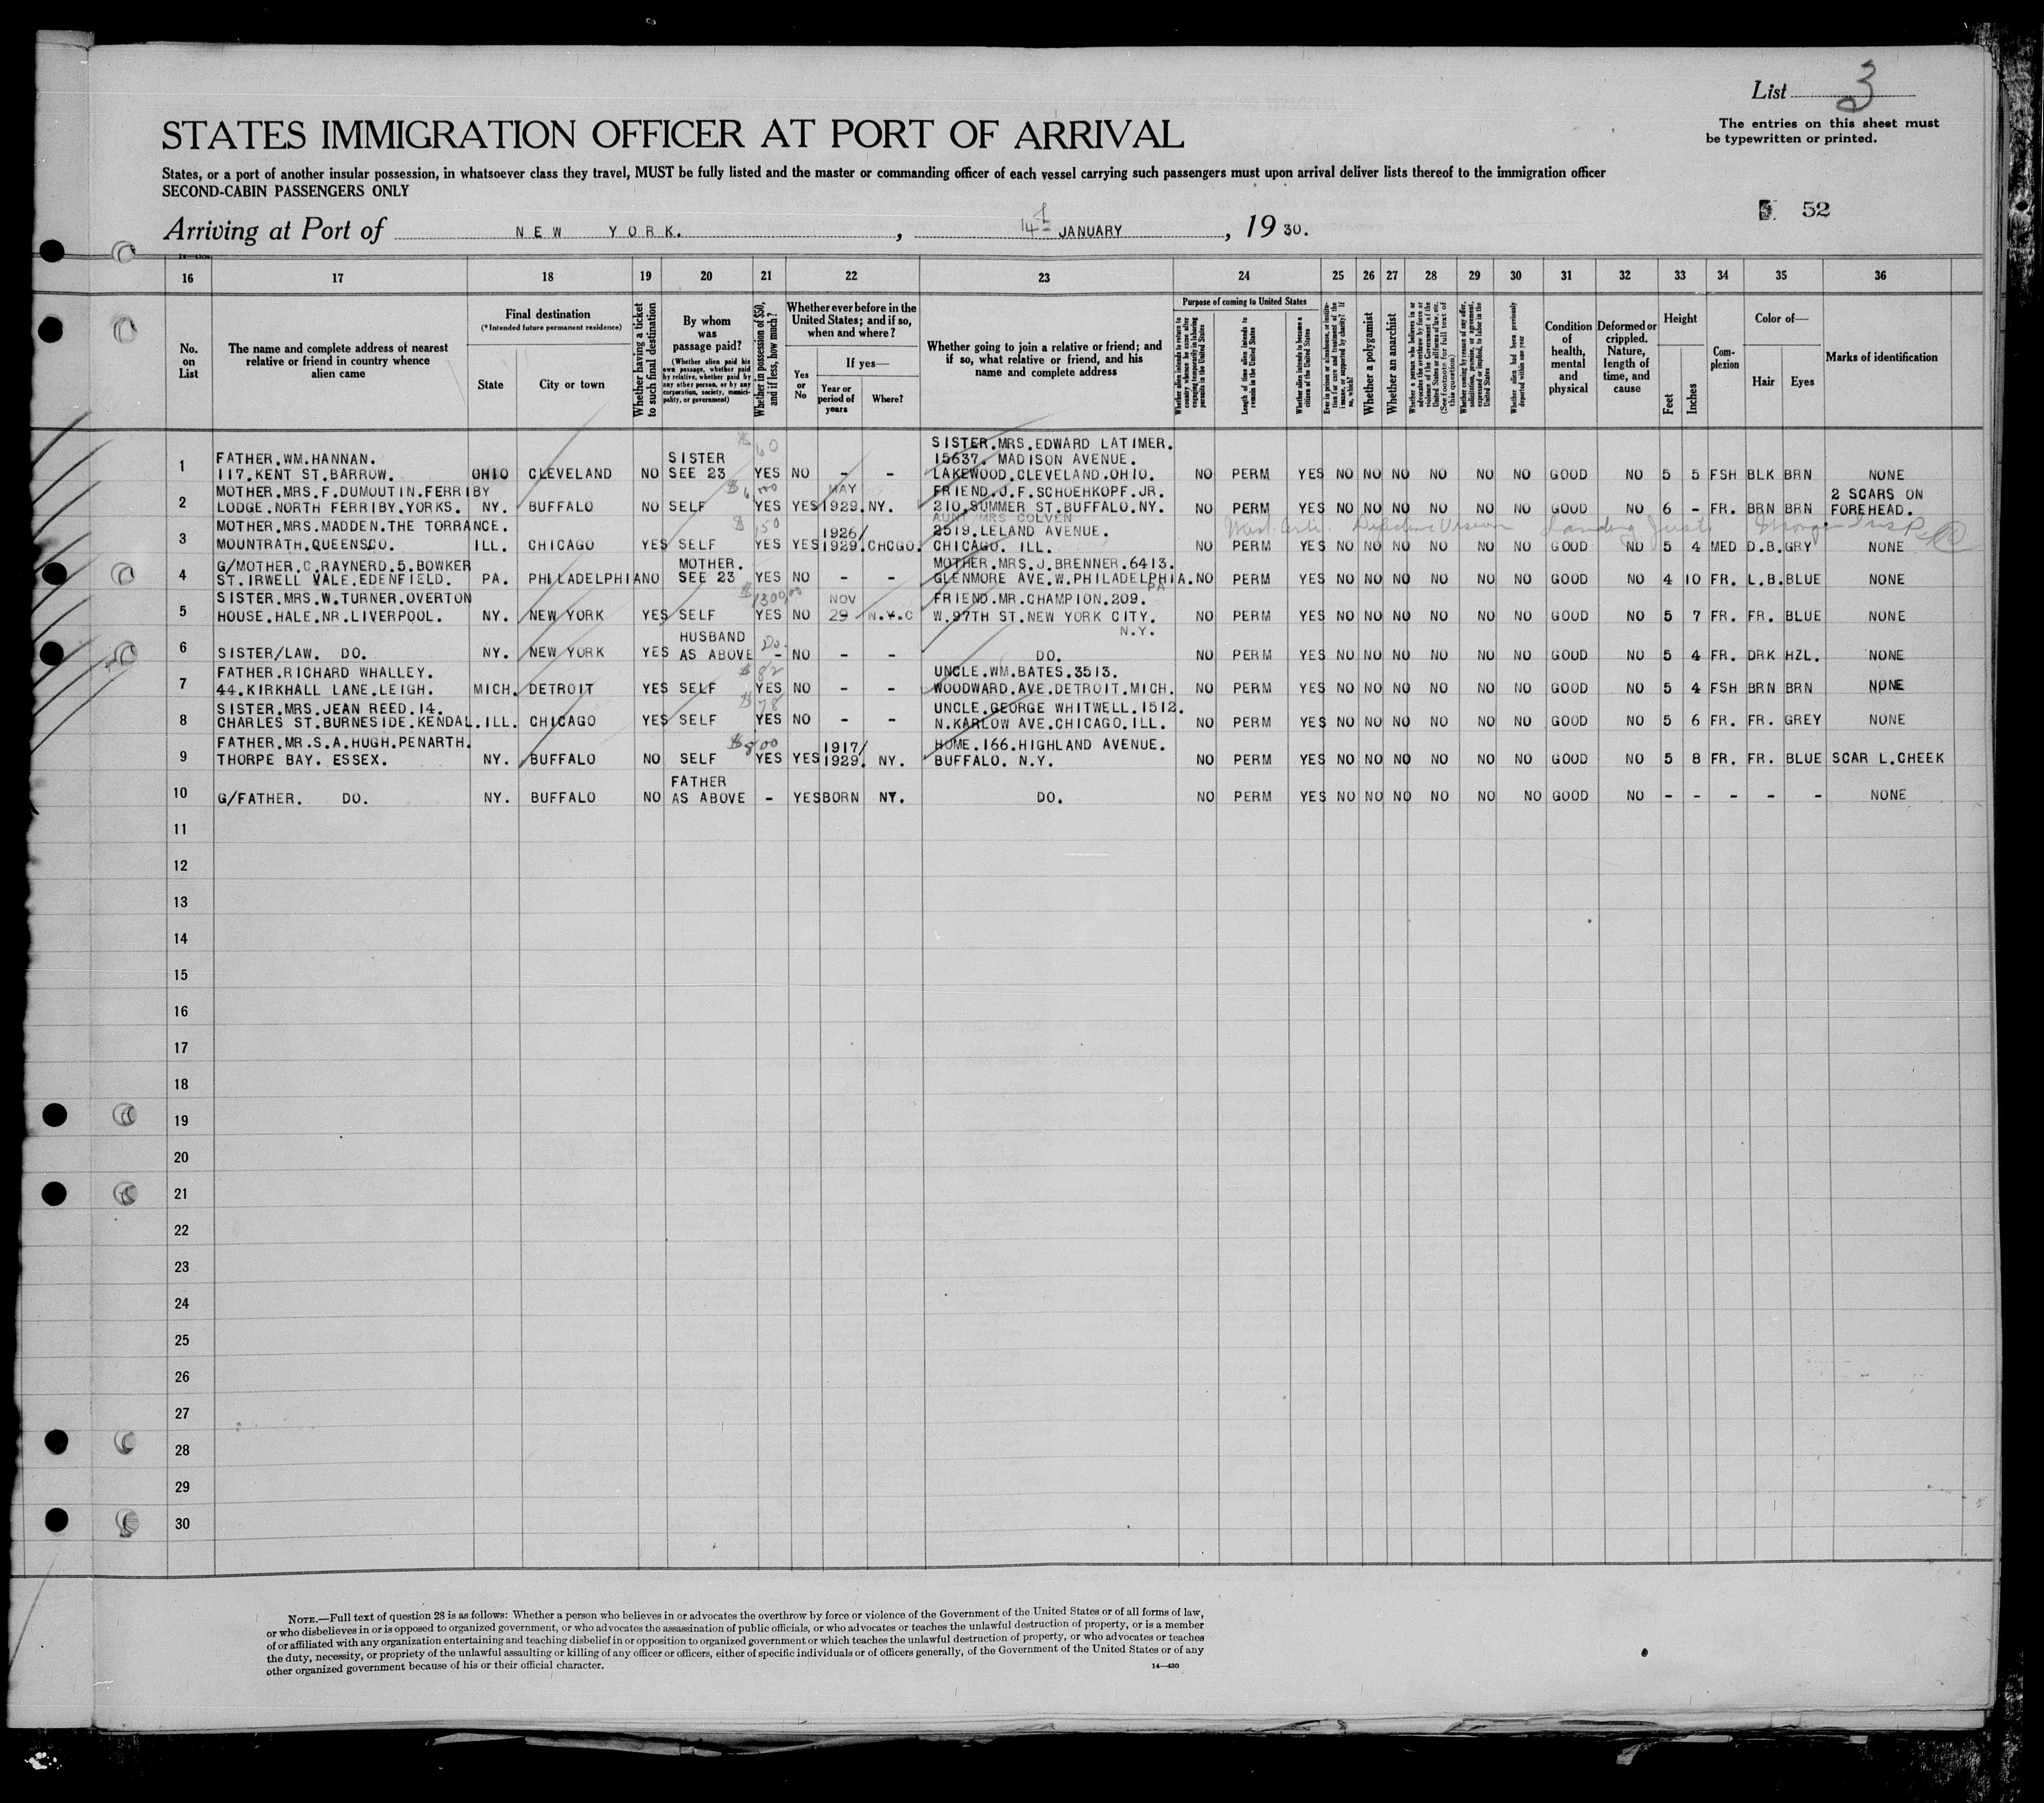 List 3
STATES IMMIGRATION OFFICER AT PORT OF ARRIVAL
The entries on this sheet must
be typewritten or printed.
States, or a port of another insular possession, in whatsoever class they travel, MUST be fully listed and the master or commanding officer of each vessel carrying such passengers must upon arrival deliver lists thereof to the immigration officer
SECOND-CABIN PASSENGERS ONLY
52
Arriving at Port of NEW YORK. , 14th JANUARY , 19 30.
16 17 18 19 20 21 22 23 24 25 26 27 28 29 30 31 32 33 34 35 36
No. on List
The name and complete address of nearest relative or friend in country whence alien came
Final destination
(*Intended future permanent residence)
State
City or town
Whether having a ticket to such final destination
By whom was passage paid?
(Whether alien paid his own passage, whether paid by relative, whether paid by any other person, or by any corporation, society, municipality, or government)
Whether in possession of $50, and if less, how much?
Whether ever before in the United States; and if so, when and where?
Yes or No
If yes—
Year or period of years
Where?
Whether going to join a relative or friend; and if so, what relative or friend, and his name and complete address
Purpose of coming to United States
Whether alien intends to return to country whence he came after engaging temporarily in laboring pursuits in the United States
Length of time alien intends to remain in the United States
Whether alien intends to become a citizen of the United States
Ever in prison or almshouse, or institution for care and treatment of the insane, or supported by charity? If so, which?
Whether a polygamist
Whether an anarchist
Whether a person who believes in or advocates the overthrow by force or violence of the Government of the United States or all forms of law, etc. (See footnote for full text of this question)
Whether coming by reason of any offer, solicitation, promise, or agreement, expressed or implied, to labor in the United States
Whether alien had been previously deported within one year
Condition of health, mental and physical
Deformed or crippled. Nature, length of time, and cause
Height
Feet
Inches
Complexion
Color of—
Hair
Eyes
Marks of identification
1 FATHER.WM.HANNAN. SISTER $60 SISTER.MRS.EDWARD LATIMER. 15637. MADISON AVENUE.
117.KENT ST.BARROW. OHIO CLEVELAND NO SEE 23 YES NO - - LAKEWOOD.CLEVELAND.OHIO. NO PERM YES NO NO NO NO NO NO GOOD NO 5 5 FSH BLK BRN NONE
2 MOTHER.MRS.F.DUMOUTIN.FERRIBY MAY FRIEND.J.F.SCHOEHKOPF.JR. 2 SCARS ON
LODGE.NORTH FERRIBY.YORKS. NY. BUFFALO NO SELF YES YES 1929. NY. 210.SUMMER ST.BUFFALO.NY. NO PERM YES NO NO NO NO NO NO GOOD NO 6 - FR. BRN BRN FOREHEAD.
3 MOTHER.MRS.MADDEN.THE TORRANCE. $150 1926/ AUNT MRS COLVEN 2519.LELAND AVENUE. Med. Cert. Defective Vision Landing Just
MOUNTRATH.QUEENSCO. ILL. CHICAGO YES SELF YES YES 1929. CHCGO. CHICAGO. ILL. NO PERM YES NO NO NO NO NO NO GOOD NO 5 4 MED D.B. GRY NONE
4 G/MOTHER.C.RAYNERD.5.BOWKER MOTHER. MOTHER.MRS.J.BRENNER.6413.
ST.IRWELL VALE.EDENFIELD. PA. PHILADELPHIA NO SEE 23 YES NO - - GLENMORE AVE.W.PHILADELPHIA. PA NO PERM YES NO NO NO NO NO NO GOOD NO 4 10 FR. L.B. BLUE NONE
5 SISTER.MRS.W.TURNER.OVERTON $1300.00 NOV FRIEND.MR.CHAMPION.209.
HOUSE.HALE.NR.LIVERPOOL. NY. NEW YORK YES SELF YES NO 29 N.Y.C W.97TH ST.NEW YORK CITY. N.Y. NO PERM YES NO NO NO NO NO NO GOOD NO 5 7 FR. FR. BLUE NONE
6 HUSBAND Do.
SISTER/LAW. DO. NY. NEW YORK YES AS ABOVE - NO - - DO. NO PERM YES NO NO NO NO NO NO GOOD NO 5 4 FR. DRK HZL. NONE
7 FATHER.RICHARD WHALLEY. $82 UNCLE.WM.BATES.3513.
44.KIRKHALL LANE.LEIGH. MICH. DETROIT YES SELF YES NO - - WOODWARD.AVE.DETROIT.MICH. NO PERM YES NO NO NO NO NO NO GOOD NO 5 4 FSH BRN BRN NONE
8 SISTER.MRS.JEAN REED.14. $78 UNCLE.GEORGE WHITWELL.1512.
CHARLES ST.BURNESIDE.KENDAL. ILL. CHICAGO YES SELF YES NO - - N.KARLOW AVE.CHICAGO.ILL. NO PERM YES NO NO NO NO NO NO GOOD NO 5 6 FR. FR. GREY NONE
9 FATHER.MR.S.A.HUGH.PENARTH. $800 1917/ HOME.166.HIGHLAND AVENUE.
THORPE BAY. ESSEX. NY. BUFFALO NO SELF YES YES 1929. NY. BUFFALO. N.Y. NO PERM YES NO NO NO NO NO NO GOOD NO 5 8 FR. FR. BLUE SCAR L.CHEEK
10 FATHER
G/FATHER. DO. NY. BUFFALO NO AS ABOVE - YES BORN NY. DO. NO PERM YES NO NO NO NO NO NO GOOD NO - - - - - NONE
11
12
13
14
15
16
17
18
19
20
21
22
23
24
25
26
27
28
29
30
NOTE.—Full text of question 28 is as follows: Whether a person who believes in or advocates the overthrow by force or violence of the Government of the United States or of all forms of law,
or who disbelieves in or is opposed to organized government, or who advocates the assassination of public officials, or who advocates or teaches the unlawful destruction of property, or is a member
of or affiliated with any organization entertaining and teaching disbelief in or opposition to organized government or which teaches the unlawful destruction of property, or who advocates or teaches
the duty, necessity, or propriety of the unlawful assaulting or killing of any officer or officers, either of specific individuals or of officers generally, of the Government of the United States or of any
other organized government because of his or their official character.
14—430